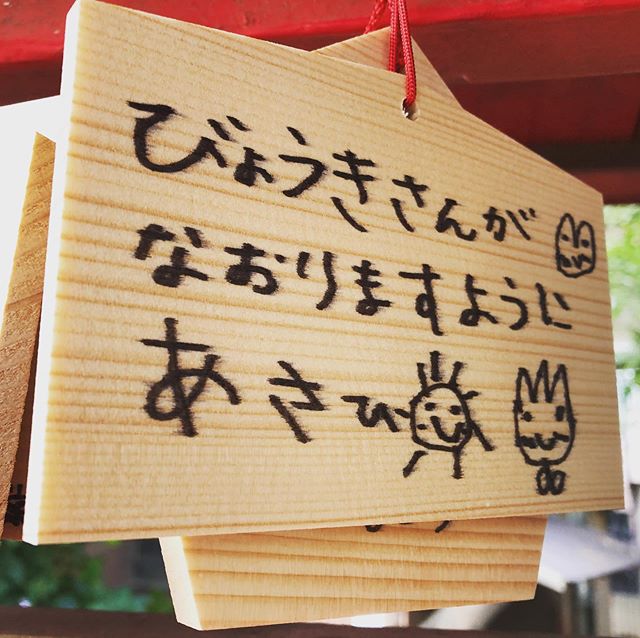 びょうきさんが
なおりますように
あさひ